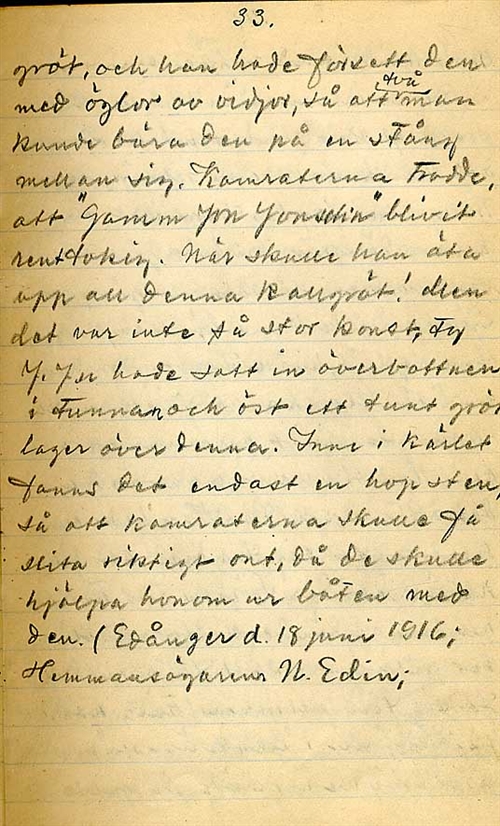 33.
gröt, och han hade försett den
två
med öglor av vidjor, så att man
kunde bära den på en stång
mellan sig. Kamraterna trodde,
att "Gamm Jon Jonsdin" blivit
rent tokig. När skulle han äta
upp all denna kallgröt! Men
det var inte så stor konst, ty
J. Jn hade satt in överbottnen
i tunnan och öst ett tunt gröt
lager över denna. Inne i kärlet
fanns det endast en hop sten,
så att kamraterna skulle få
slita riktigt ont, då de skulle
hjälpa honom ur båten med
den. (Edånger d. 18 juni 1916;
Hemmansägaren N. Edin;